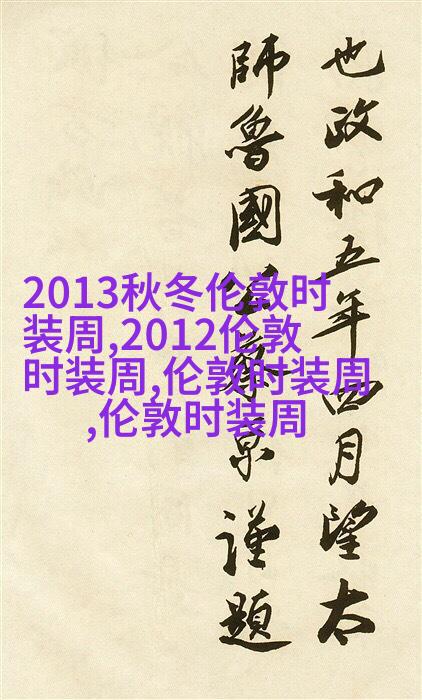 也政和五年四月望太
師魯國公蔡京謹題
2013秋冬伦敦时
装周,2012伦敦
时装周,伦敦时装周
,伦敦时装周